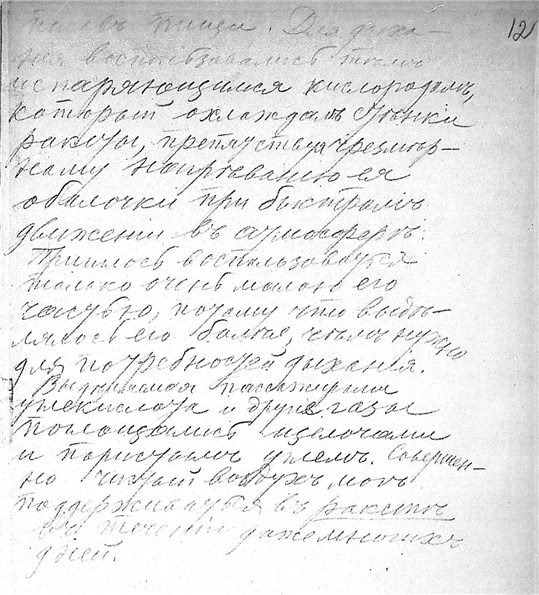 12
пасъ пищи. Для дыха-
нія воспользовались тѣмъ
испаряющимся кислородомъ,
который охлаждалъ стѣнки
ракеты, препятствуя чрезмѣр-
ному нагрѣванію ея
оболочки при быстромъ
движеніи въ атмосферѣ.
Пришлось воспользоваться
только очень малою его
частью, потому что выдѣ-
лялось его болѣе, чѣмъ нужно
для потребностей дыханія.
Выдыхаемая пассажирами
углекислота и другіе газы
поглощались щелочами
и пористымъ углемъ. Совершен-
но чистый воздухъ могъ
поддерживаться въ ракетѣ
въ теченіи даже многихъ
дней.